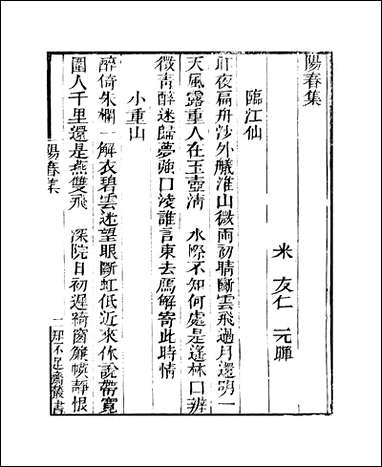 陽春集
米　友仁　元暉
臨江仙
昨夜扁舟沙外艤淮山微雨初晴斷雲飛過月還明一
天風露重人在玉壺清　水際不知何處是遙林口辨
微青醉迷歸夢強口淩誰言東去鴈解寄此時情
小重山
醉倚朱欄一解衣碧雲迷望眼斷虹低近來休說帶寬
圍人千里還是燕雙飛　深院日初遲綺窗簾幙靜恨
陽春集
一知不足齋叢書